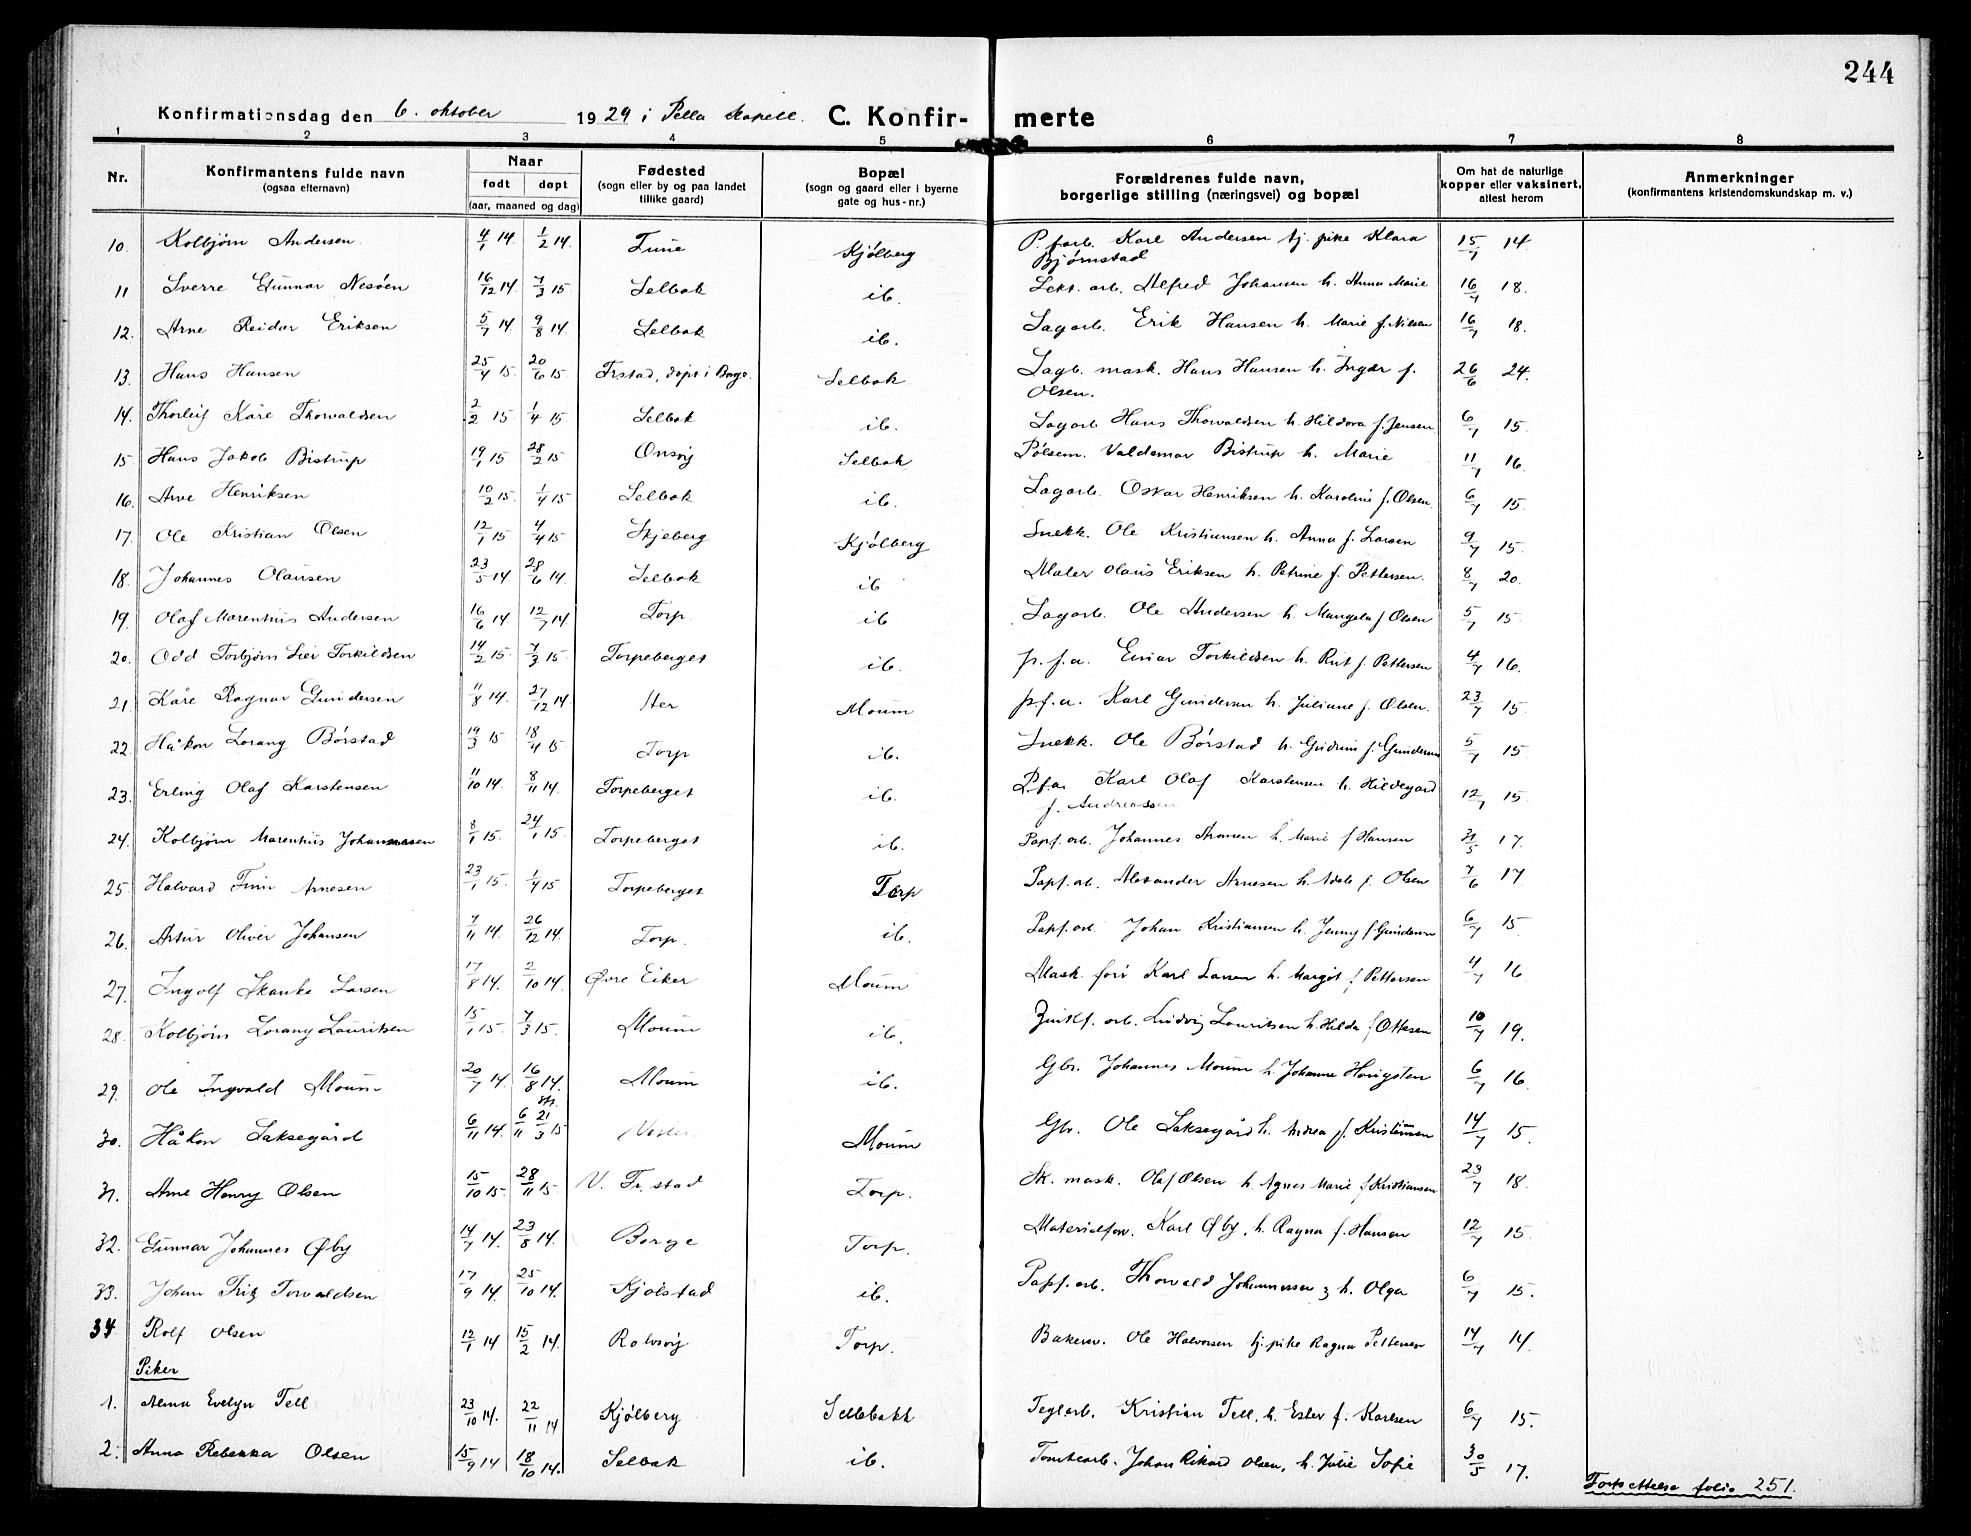 244
Konfirmationsdag den 6. oktober 1929 i Pella kapell. C. Konfirmerte
1 2 3 4 5 6 7 8
Nr. Konfirmantens fulde navn (ogsaa efternavn) Naar født døpt (aar, maaned og dag) Fødested (sogn eller by og paa landet tillike gaard) Bopæl (sogn og gaard eller i byerne gate og hus-nr.) Forældrenes fulde navn, borgerlige stilling (næringsvei) og bopæl Om hat de naturlige kopper eller vaksinert, attest herom Anmerkninger (konfirmantens kristendomskundskap m. v.)
10. Kolbjørn Andersen 4/1 14. 1/2 14. Tune Kjølberg P. farb. Karl Andersen tj. pike Klara Bjørnstad 15/7 14
11 Sverre Gunnar Nesøen 16/12 14. 7/3 15 Selbak ib. Sekt. arb. Alfred Johansen h. Anna Marie 16/7 18.
12. Arne Reidar Eriksen 5/7 14 9/8 14 Selbak ib. Sagarb. Erik Hansen h. Marie f. Nilsen 16/7 18.
13. Hans Hansen 25/4 15. 20/6 15 Frstad, døpt i Borge. Selbak Sagb. mask. Hans Hansen h. Inger f. Olsen. 26/6 24.
14. Thorleif Kåre Thorvaldsen 2/2 15 1/4 15 Selbak ib. Sagarb Hans Thorvaldsen h. Hildora f. Jensen 6/7 15.
15 Hans Jakob Bistrup 19/1 15. 28/2 15 Onsøy Selbak Pølsem. Valdemar Bistrup h. Marie 11/7 16.
16. Arve Henriksen 10/2 15. 1/4 15 Selbak ib. Sagarb. Oskar Henriksen h. Karoline f. Olsen 6/7 15.
17. Ole Kristian Olsen 12/1 15 4/4 15 Skjeberg Kjølberg Snekk. Ole Kristiansen h. Anna f. Larsen 9/7 15.
18. Johannes Olausen 23/5 14 28/6 14. Selbak ib Maler Olaus Eriksen h. Petrine f. Pettersen. 8/7 20.
19. Olaf Marentius Andersen 16/6 14 12/7 14. Torp ib Sagarb. Ole Andersen h. Mangela f. Olsen 5/7 15.
20. Odd Torbjørn Lier Torkildsen 14/2 15. 7/3 15. Torpeberget ib. p. f. a. Einar Torkildsen h. Rut f. Pettersen 4/7 16.
21. Kåre Ragnar Gundersen 11/8 14. 27/12 14 Her Moum p.f.a. Karl Gundersen h. Juliane f. Olsen. 23/7 15.
22. Håkon Lorang Børstad 19/3 15 18/4 15 Torp ib. Snekk. Ole Børstad h. Gudrun f. Gundersen 5/7 15
23. Erling Olaf Karstensen 11/10 14. 8/11 14. Torpeberget ib. P.f.a. Karl Olaf Karstensen h. Hildegard f. Andreassen 12/7 15.
24. Kolbjørn Marentius Johannessen 8/1 15. 24/1 15. Torpeberget ib. Papf. arb. Johannes Aronsen h. Marie f Hansen 31/5 17.
25. Halvard Finn Arnesen 23/1 15. 1/4 15. Torpeberget Torp Papf. arb. Alexander Arnesen h. Adele f. Olsen 7/6 17
26. Artur Oliver Johansen 7/11 14. 26/12 14. Torp. ib. Papf. arb. Johan Kristiansen h. Jenny f Gundersen 6/7 15.
27. Ingolf Skanke Larsen 17/8 14. 2/10 14. Øvre Eiker Moum Mask. forv Karl Larsen h. Margit f Pettersen 4/7 16
28. Kolbjørn Lorang Lauritsen 15/1 15. 7/3 15. Moum ib. Zinkf. arb. Ludvig Lauritsen h. Hilda f Ottesen 10/7 19.
29. Ole Ingvald Moum 20/7 14. 16/8 14. Moum ib. Gbr. Johannes Moum h. Johanne Haugsten 6/7 16.
30. Håkon Laksegård 6/11 14. 6/11 21/3 15 Moum Gbr. Ole Laksegård h. Andrea f. Kristiansen 14/7 15.
31. Arne Henry Olsen 15/10 15. 28/11 15. V. Fr. stad Torp. Sk. mask. Olaf Olsen h. Agnes Marie f Kristiansen 23/7 18.
32. Gunnar Johannes Øby 14/7 14. 23/8 14. Borge Torp. Materialforv. Karl Øby, h. Ragna f. Hansen 12/7 15.
33. Johan Fritz Torvaldsen 17/9 14. 25/10 14. Kjølstad ib. Papf. arb. Thorvald Johannessen h. Olga 6/7 15.
34 Rolf Olsen 12/1 14 15/2 14. Rolvsøy Torp. Bakersv. Ole Halvorsen tj. pike Ragna Pettersen 14/7 14.
Piker
1. Alma Evelyn Tell 23/10 14. 22/11 14 Kjølberg Sellebakk Teglarb. Kristian Tell, h. Ester f. Karlsen 6/7 15.
2. Anna Rebekka Olsen 15/9 14 18/10 14. Selbak ib. Tomtearb. Johan Rikard Olsen, h. Julie Sofie 30/5 17.
Fortsettelse folio 251.